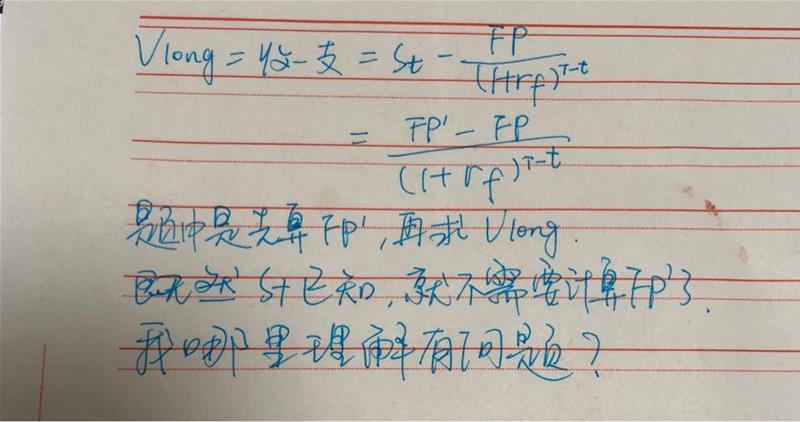 Vlong = 收-支 = St - FP/(1+rf)^(T-t)
= (FP' - FP)/(1+rf)^(T-t)
题中是先算FP', 再求Vlong.
既然St已知, 就不需要计算FP'了.
我哪里理解有问题?